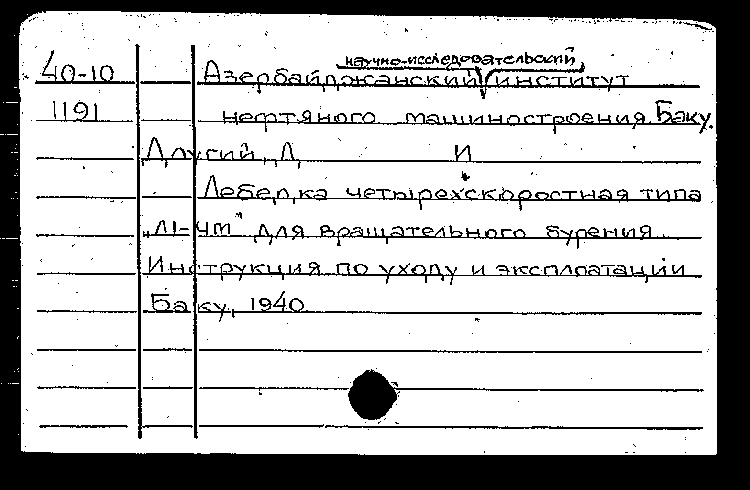 научно-исследовательский
40-10 Азербайджанский институт
1191 нефтяного машиностроения. Баку.
Другий, Л И
Лебедка четырехскоростная типа
„Л1-4т" для вращательного бурения.
Инструкция по уходу и эксплоатации
Баку, 1940